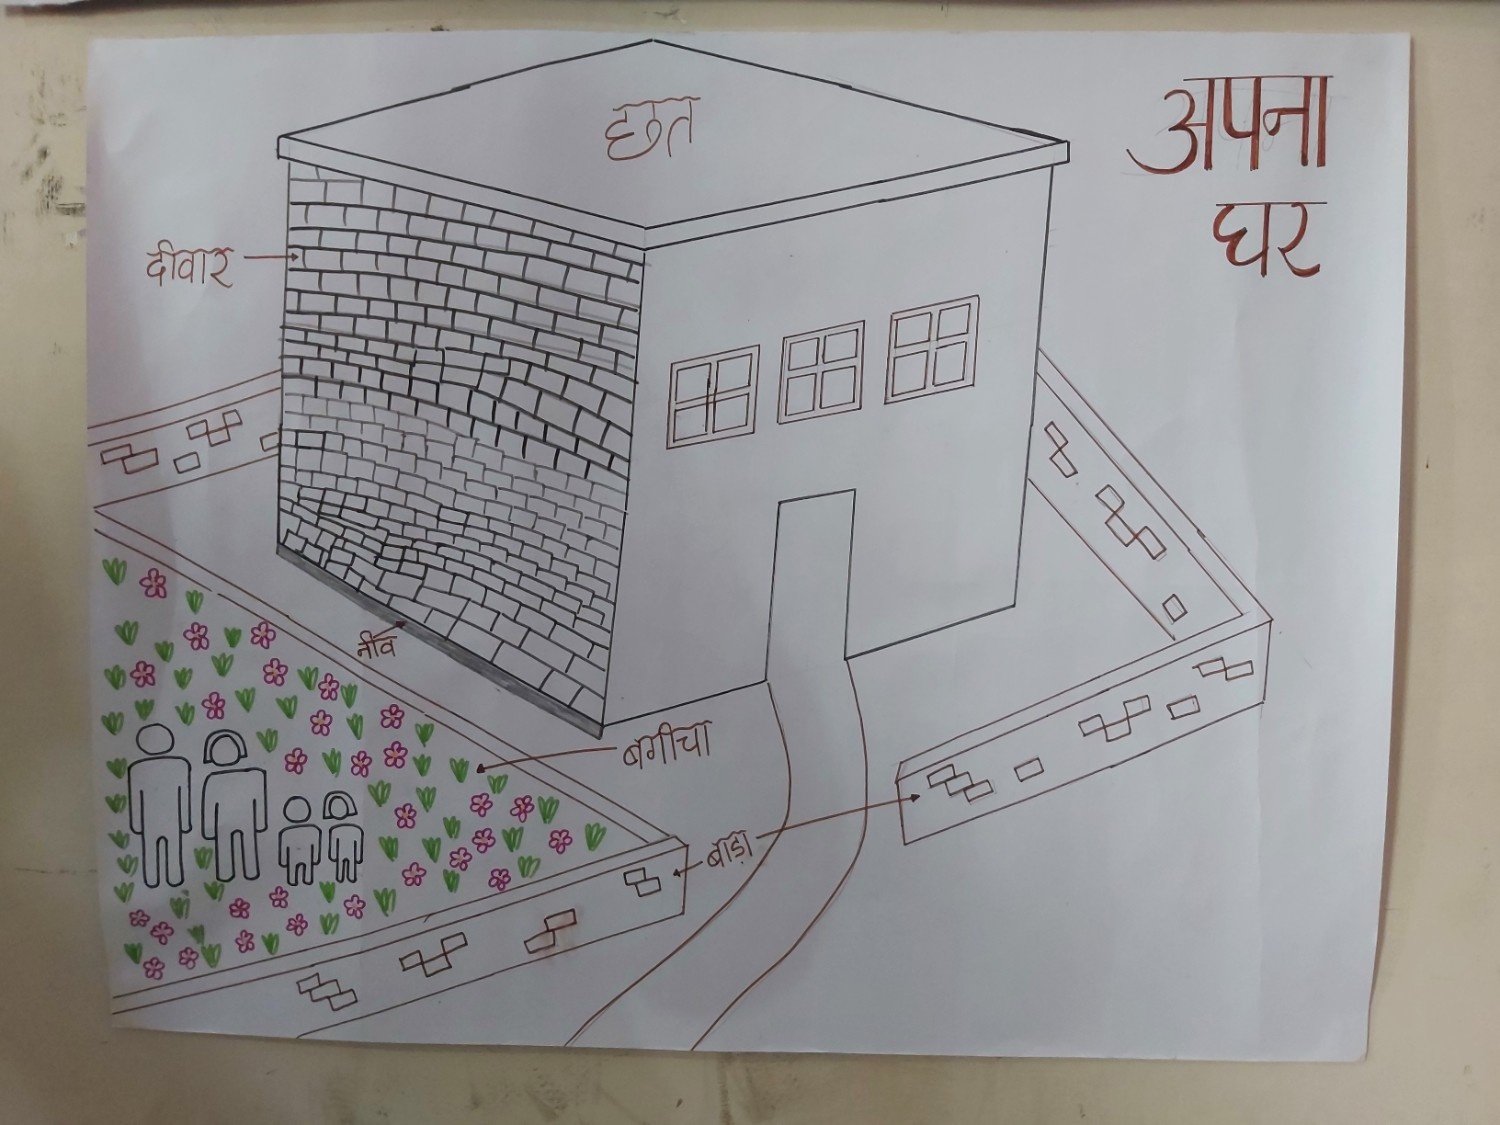 अपना
घर
छत
दीवार
नींव
बगीचा
बाड़ा